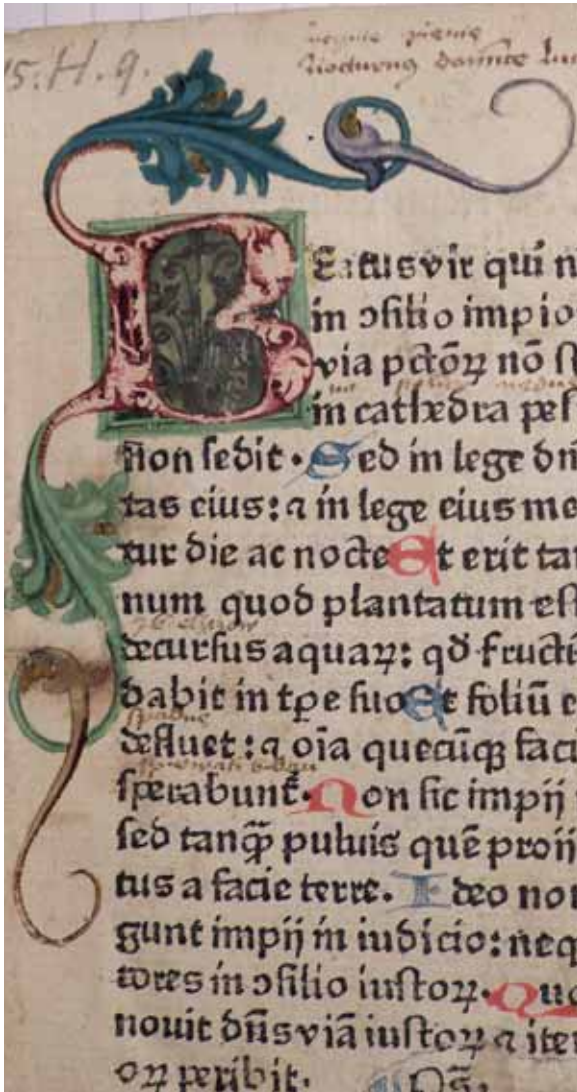 15.H.9.
BEatus vir qui n
in ɔſilio impio
via pctōꝝ nō ſt
in cathedra peſ
n̄on ſedit. Sed in lege dn̄
tas eius: ⁊ in lege eius me
tur die ac nocte Et erit tan
num quod plantatum eſt
decurſus aquaꝝ: qd̓ fructū
dabit in tꝑe ſuo Et foliū e
defluet: ⁊ oīa quecūqꝫ faci
ſperabunt̓. Non ſic impij
ſed tanqͣꝫ puluis quē proij
tus a facie terre. Ideo non
gunt impij in iudicio: neq
tores in ɔſilio iuſtoꝝ. Quo
novit dn̄s viā iuſtoꝝ ⁊ iter
oꝝ peribit. Ps̄